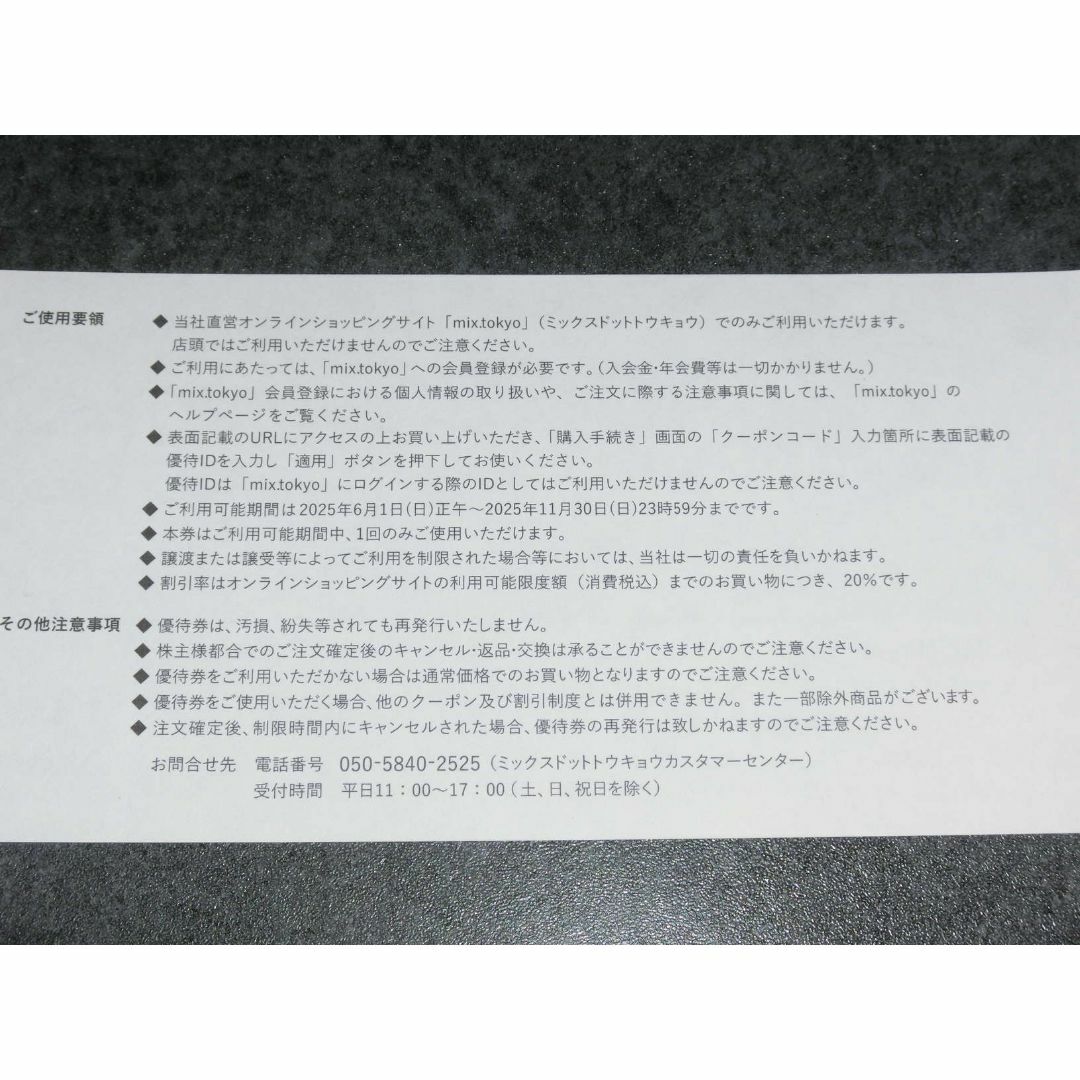 ご使用要領 ◆ 当社直営オンラインショッピングサイト「mix.tokyo」（ミックスドットトウキョウ）でのみご利用いただけます。
店頭ではご利用いただけませんのでご注意ください。
◆ ご利用にあたっては、「mix.tokyo」への会員登録が必要です。（入会金・年会費等は一切かかりません。）
◆ 「mix.tokyo」会員登録における個人情報の取り扱いや、ご注文に際する注意事項に関しては、「mix.tokyo」の
ヘルプページをご覧ください。
◆ 表面記載のURLにアクセスの上お買い上げいただき、「購入手続き」画面の「クーポンコード」入力箇所に表面記載の
優待IDを入力し「適用」ボタンを押下してお使いください。
優待IDは「mix.tokyo」にログインする際のIDとしてはご利用いただけませんのでご注意ください。
◆ ご利用可能期間は2025年6月1日(日)正午～2025年11月30日(日)23時59分までです。
◆ 本券はご利用可能期間中、1回のみご使用いただけます。
◆ 譲渡または譲受等によってご利用を制限された場合等においては、当社は一切の責任を負いかねます。
◆ 割引率はオンラインショッピングサイトの利用可能限度額（消費税込）までのお買い物につき、20%です。
その他注意事項 ◆ 優待券は、汚損、紛失等されても再発行いたしません。
◆ 株主様都合でのご注文確定後のキャンセル・返品・交換は承ることができませんのでご注意ください。
◆ 優待券をご利用いただかない場合は通常価格でのお買い物となりますのでご注意ください。
◆ 優待券をご使用いただく場合、他のクーポン及び割引制度とは併用できません。また一部除外商品がございます。
◆ 注文確定後、制限時間内にキャンセルされた場合、優待券の再発行は致しかねますのでご注意ください。
お問合せ先 電話番号 050-5840-2525（ミックスドットトウキョウカスタマーセンター）
受付時間 平日11：00～17：00（土、日、祝日を除く）